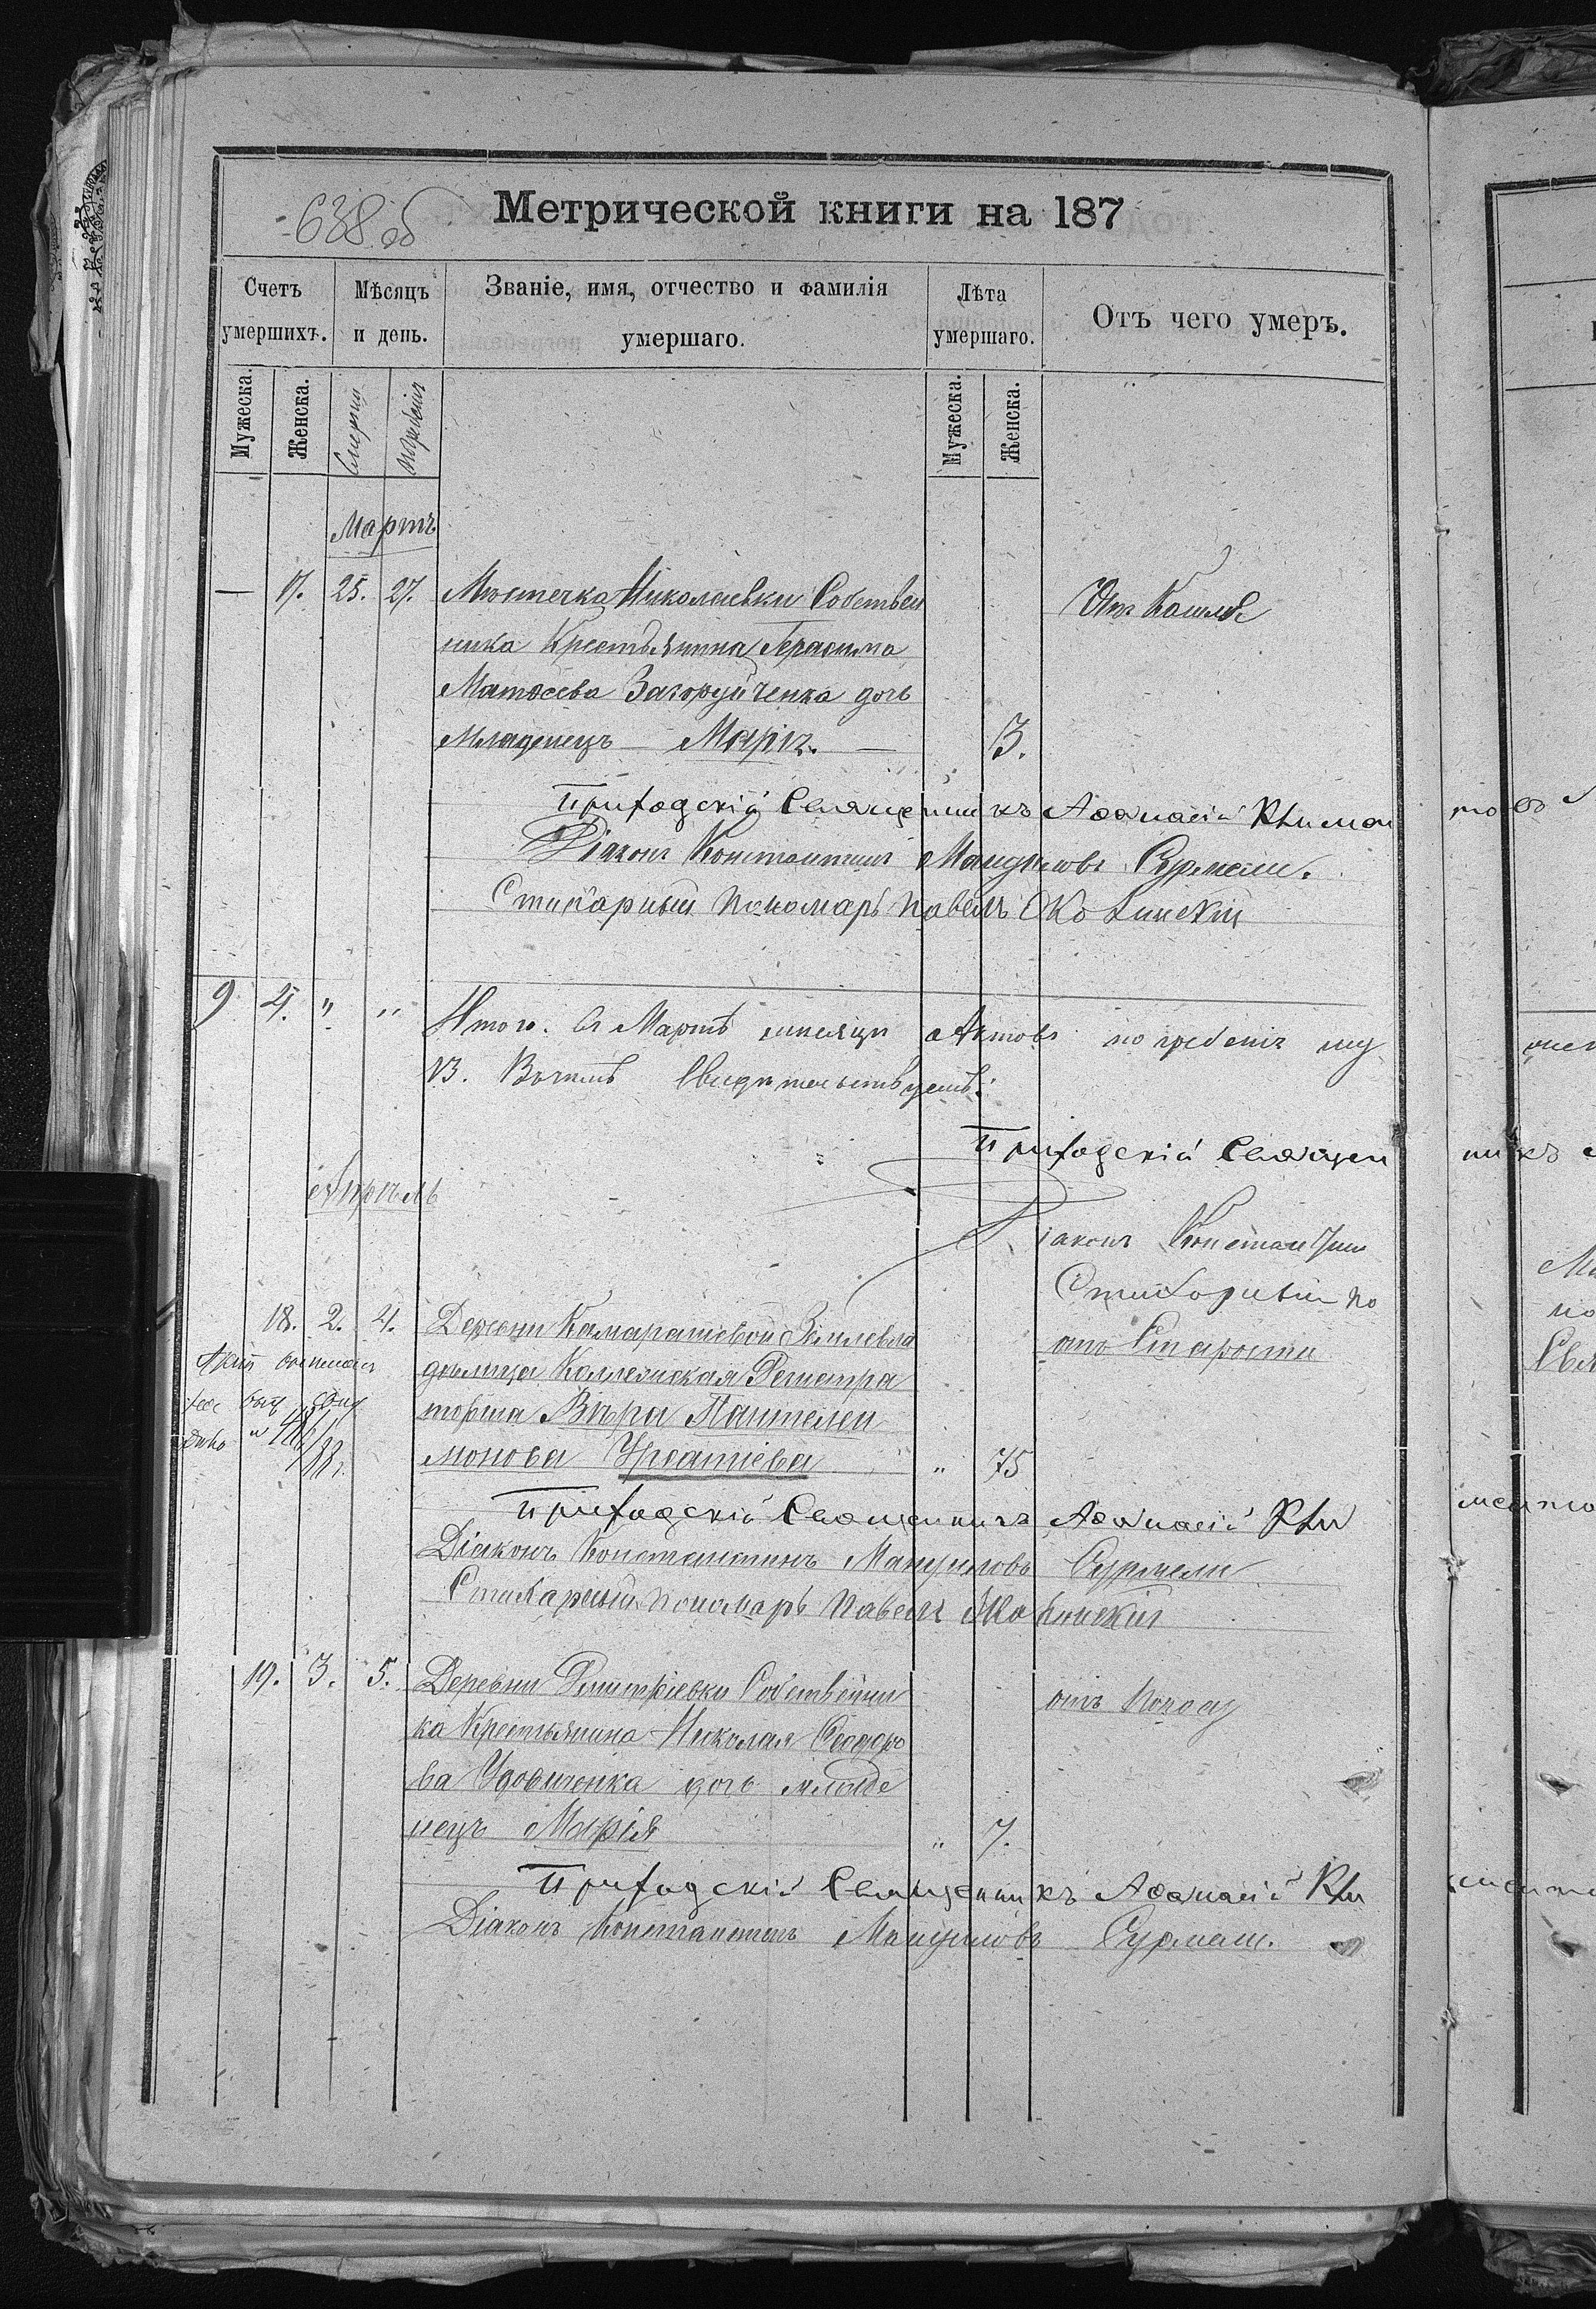 638 об
Метрической книги на 187
Счетъ умершихъ.
Мѣсяцъ и день.
Званіе, имя, отчество и фамилія умершаго.
Лѣта умершаго.
Отъ чего умеръ.
Мужеска.
Женска.
Смерти
Погребенія
Мужеска.
Женска.
Мартъ
— 17. 25. 27. Мѣстечка Николаевки Собствен
Отъ Кашля
ника Крестьянина Герасима
Матвеева Загоруйченка дочь
Младенецъ — Марія. — 3.
Приходскій Священникъ Аѳанасій
Діаконъ Константинъ Мануиловъ Сурмели.
Стихарный пономарь Павелъ
9 4. " " Итого. Въ Мартѣ мѣсяцѣ актовъ погребенія
Свидѣтельствуемъ:
Приходскій Священ
Апрѣль
Діаконъ Константин
Стихарный по
18. 2. 4. Деревни Камаратевой Землевла
отъ Старости
дѣлица Коллежская Регистра
торша Вѣра Пантелеи
монова " 75
Актъ
Приходскій Священникъ Аѳанасій
Діаконъ Константинъ Мануиловъ Сурмели
Стихарный пономарь Павелъ
19. 3. 5. Деревни Димитріевки Собственни
отъ
ка Крестьянина Николая Ѳеодоро
ва Удовиченка дочь младе
нецъ Марія " 7.
Приходскій Священникъ Аѳанасій
Діаконъ Константинъ Мануиловъ Сурмели.